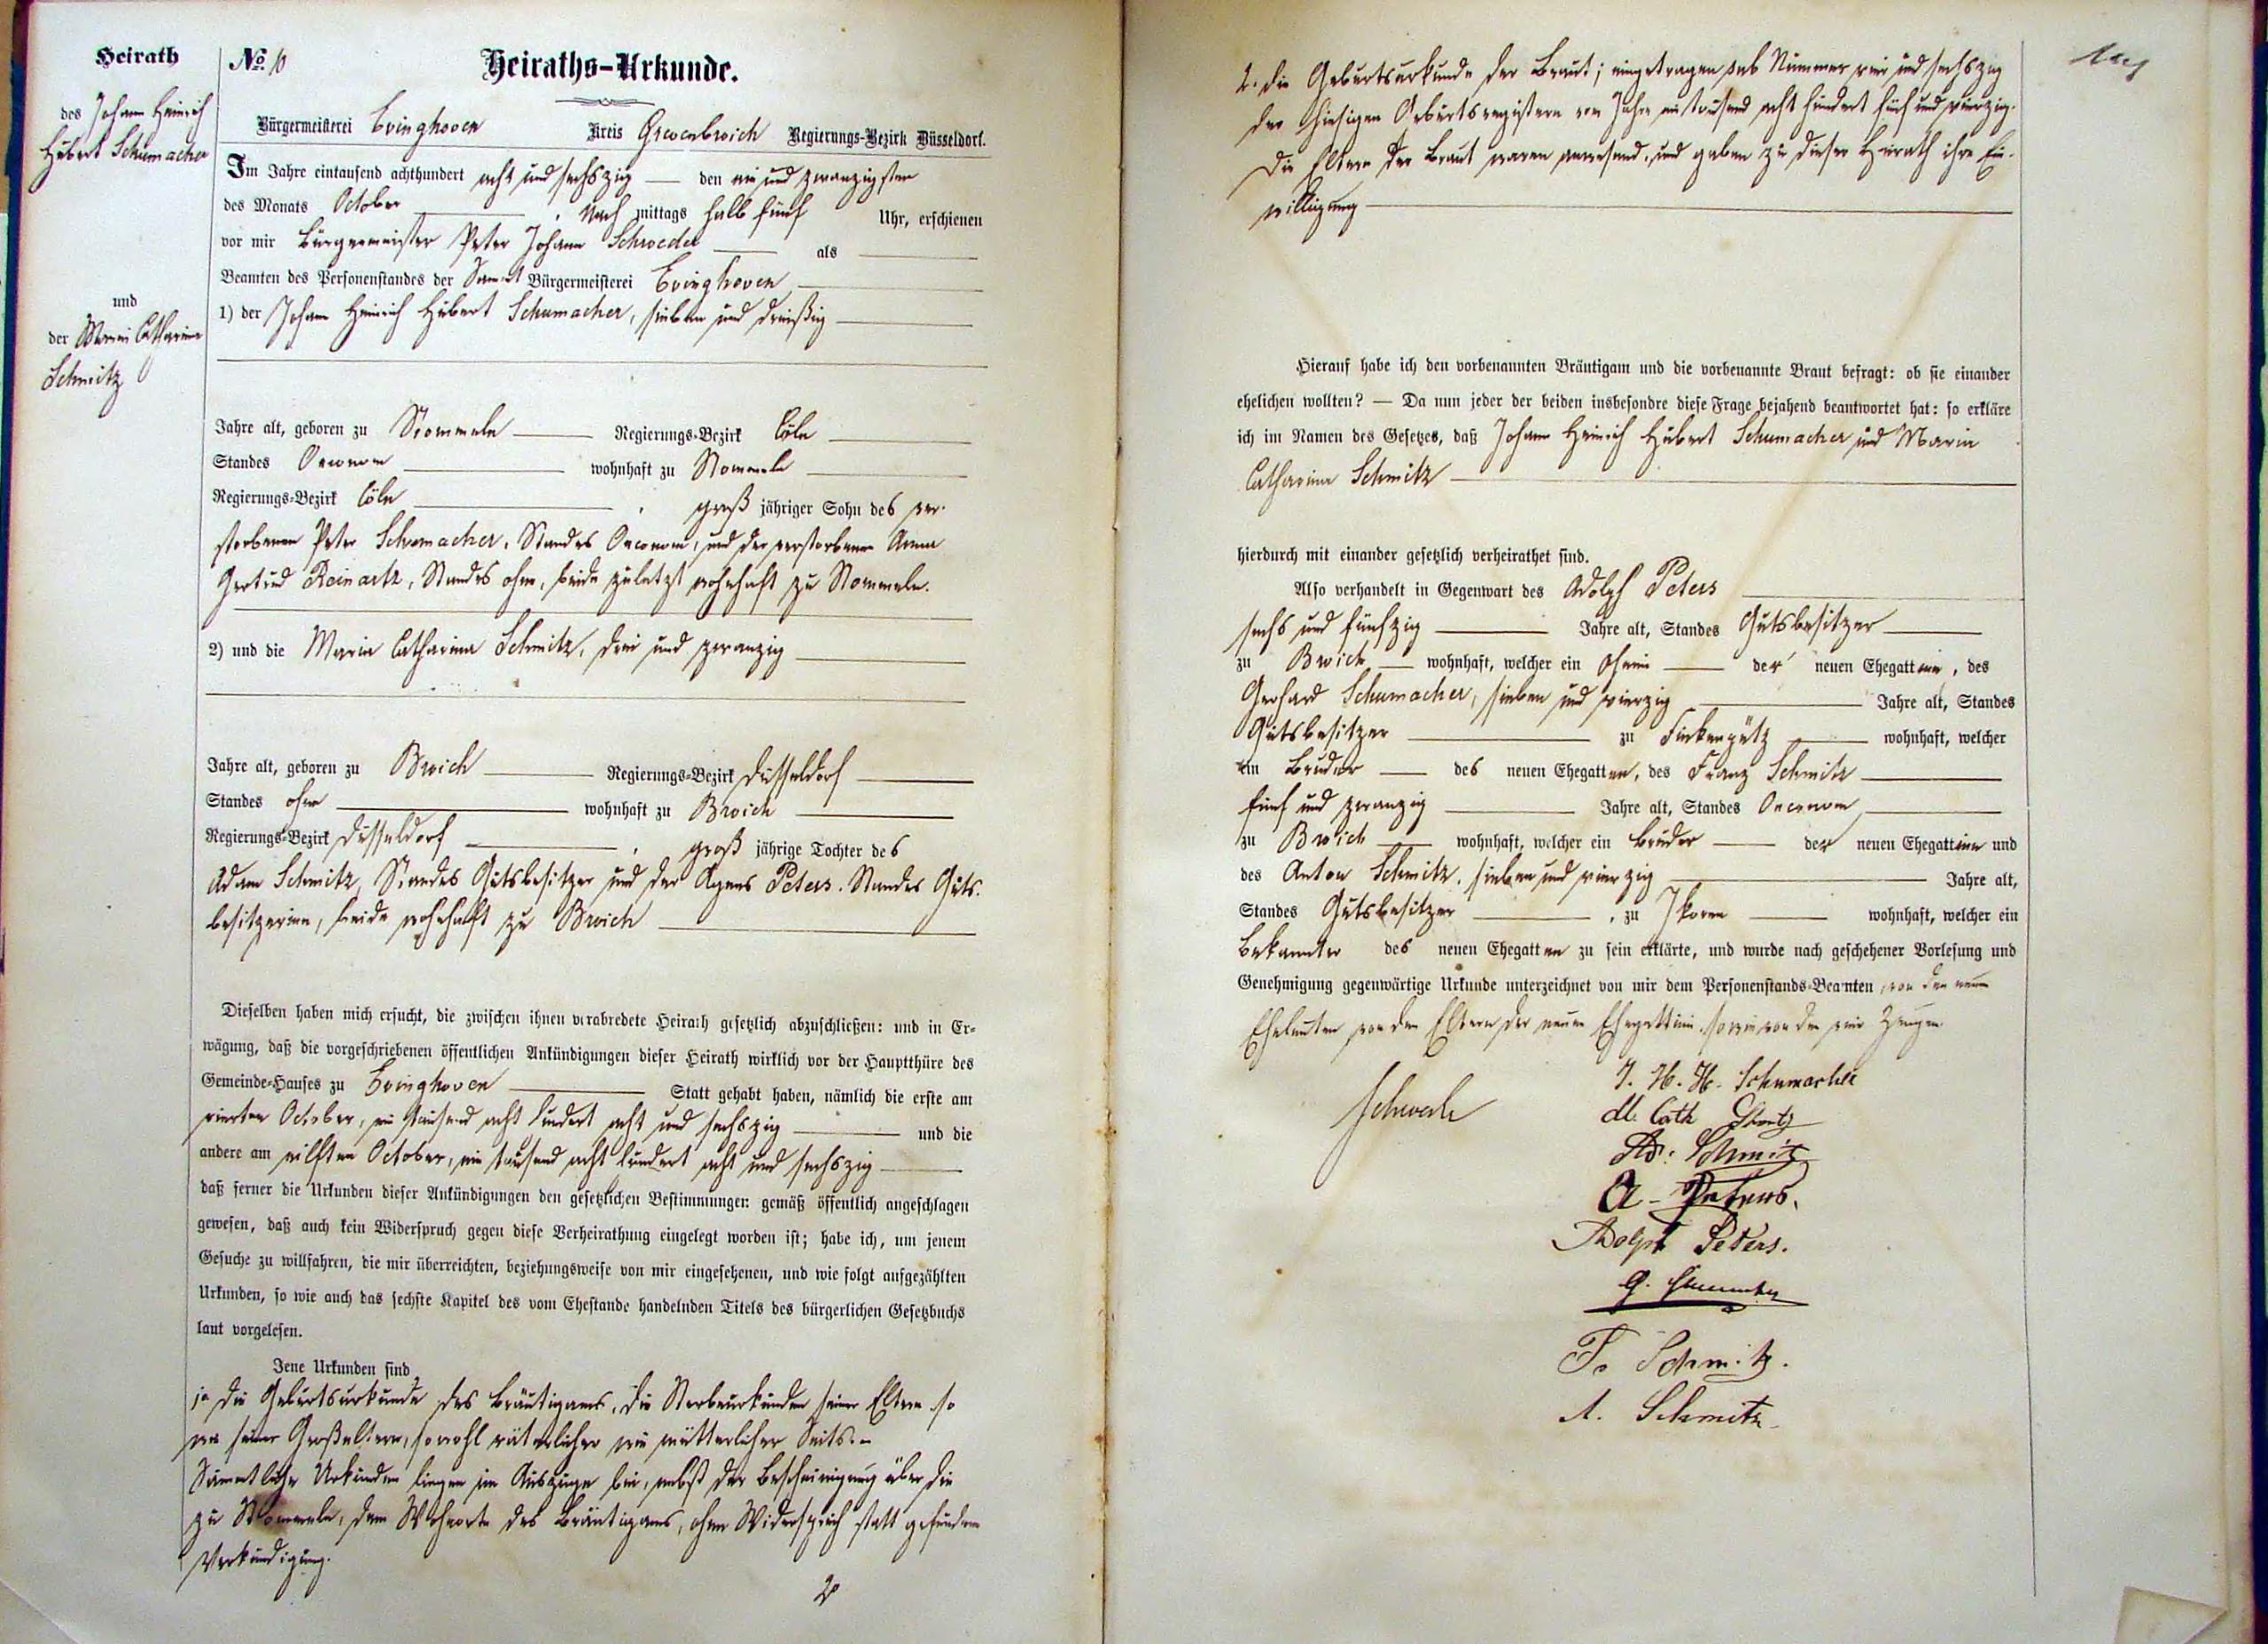 Heirath
des Johann Heinrich
Hubert Schumacher
und
der Maria Catharina
Schmitz
No. 10
Heiraths-Urkunde.
Bürgermeisterei Evinghoven Kreis Grevenbroich Regierungs-Bezirk Düsseldorf.
Im Jahre eintausend achthundert acht und sechszig den ein und zwanzigsten
des Monats October, Nach mittags halb fünf Uhr, erschienen
vor mir Bürgermeister Peter Johann Schroeder als
Beamten des Personenstandes der Samt Bürgermeisterei Evinghoven
1) der Johann Heinrich Hubert Schumacher, sieben und dreißig
Jahre alt, geboren zu Stommeln Regierungs-Bezirk Cöln
Standes Oeconom wohnhaft zu Stommeln
Regierungs-Bezirk Cöln, groß jähriger Sohn des ver-
storbenen Peter Schumacher, Standes Oeconom, und der verstorbenen Anna
Gertrud Reinartz, Standes ohne, beide zuletzt wohnhaft zu Stommeln.
2) und die Maria Catharina Schmitz, drei und zwanzig
Jahre alt, geboren zu Broich Regierungs-Bezirk Düsseldorf
Standes ohne wohnhaft zu Broich
Regierungs-Bezirk Düsseldorf, groß jährige Tochter des
Adam Schmitz, Standes Gutsbesitzer und der Agnes Peters, Standes Guts-
besitzerinn, beide wohnhaft zu Broich
Dieselben haben mich ersucht, die zwischen ihnen verabredete Heirath gesetzlich abzuschließen: und in Er-
wägung, daß die vorgeschriebenen öffentlichen Ankündigungen dieser Heirath wirklich vor der Hauptthüre des
Gemeinde-Hauses zu Evinghoven Statt gehabt haben, nämlich die erste am
vierten October, ein tausend acht hundert acht und sechszig und die
andere am eilften October, ein tausend acht hundert acht und sechszig
daß ferner die Urkunden dieser Ankündigungen den gesetzlichen Bestimmungen gemäß öffentlich angeschlagen
gewesen, daß auch kein Widerspruch gegen diese Verheirathung eingelegt worden ist; habe ich, um jenem
Gesuche zu willfahren, die mir überreichten, beziehungsweise von mir eingesehenen, und wie folgt aufgezählten
Urkunden, so wie auch das sechste Kapitel des vom Ehestande handelnden Titels des bürgerlichen Gesetzbuchs
laut vorgelesen.
Jene Urkunden sind
1. die Geburtsurkunde des Bräutigams, die Sterbeurkunden seiner Eltern so
wie seiner Großeltern, sowohl väterlicher wie mütterlicher Seits.
Sämmtliche Urkunden liegen im Auszuge bei, nebst der Bescheinigung über die
zu Stommeln, dem Wohnorte des Bräutigams, ohne Widerspruch statt gefundene
Verkündigung.
2. die Geburtsurkunde der Braut; eingetragen sub Nummer vier und sechszig
der hiesigen Geburtsregistern vom Jahre ein tausend acht hundert fünf und vierzig.
Die Eltern der Braut waren anwesend, und gaben zu dieser Heirath ihre Ein-
willigung
Hierauf habe ich den vorbenannten Bräutigam und die vorbenannte Braut befragt: ob sie einander
ehelichen wollten? — Da nun jeder der beiden insbesondre diese Frage bejahend beantwortet hat: so erkläre
ich im Namen des Gesetzes, daß Johann Heinrich Hubert Schumacher und Maria
Catharina Schmitz
hierdurch mit einander gesetzlich verheirathet sind.
Also verhandelt in Gegenwart des Adolph Peters
sechs und fünfzig Jahre alt, Standes Gutsbesitzer
zu Broich wohnhaft, welcher ein Oheim der neuen Ehegattinn, des
Gerhard Schumacher, sieben und vierzig Jahre alt, Standes
Gutsbesitzer zu wohnhaft, welcher
ein Bruder des neuen Ehegatten, des Franz Schmitz
fünf und zwanzig Jahre alt, Standes Oeconom
zu Broich wohnhaft, welcher ein Bruder der neuen Ehegattinn und
des Anton Schmitz, sieben und vierzig Jahre alt,
Standes Gutsbesitzer, zu Ikoven wohnhaft, welcher ein
Bekannter des neuen Ehegatten zu sein erklärte, und wurde nach geschehener Vorlesung und
Genehmigung gegenwärtige Urkunde unterzeichnet von mir dem Personenstands-Beamten, von den neuen
Eheleuten von den Eltern der neuen Ehegattinn, sowie von den vier Zeugen.
J. H. H. Schumacher
M. Cath Schmitz
Ad. Schmitz
A. Peters.
Adolph Peters.
G. Schumacher
Fr Schmitz.
A. Schmitz